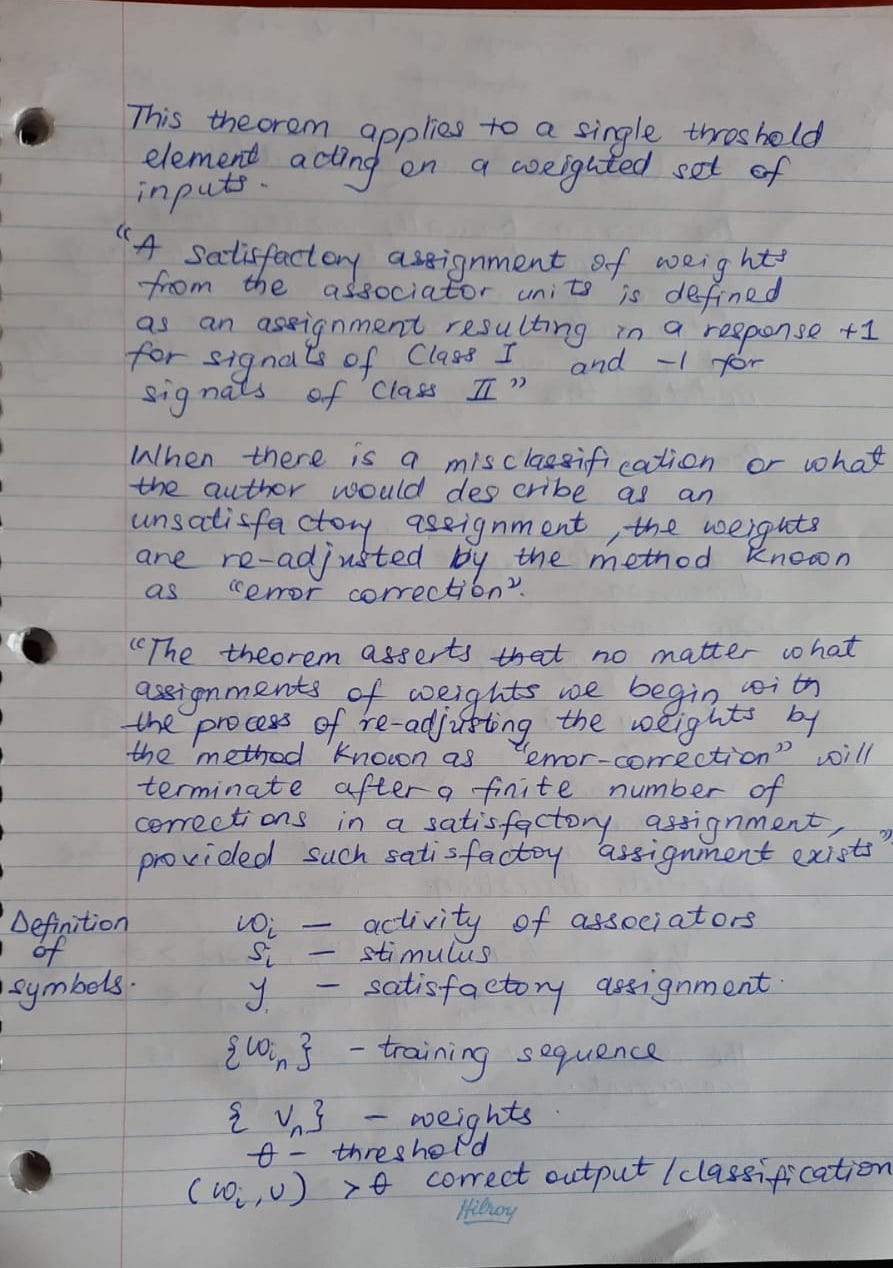 This theorem applies to a single threshold
element acting on a weighted set of
inputs.
"A satisfactory assignment of weights
from the associator units is defined
as an assignment resulting in a response +1
for signals of Class I and -1 for
signals of Class II"
When there is a misclassification or what
the author would describe as an
unsatisfactory assignment, the weights
are re-adjusted by the method known
as "error correction".
"The theorem asserts that no matter what
assignments of weights we begin with
the process of re-adjusting the weights by
the method known as "error-correction" will
terminate after a finite number of
corrections in a satisfactory assignment,
provided such satisfactoy assignment exists"
Definition wi – activity of associators
of si – stimulus
symbols. y – satisfactory assignment.
{win} – training sequence
{vn} – weights.
θ – threshold
(wi, v) > θ correct output / classification
Hilroy